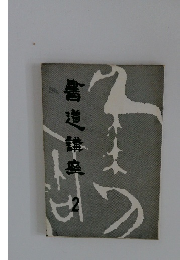 書道講座
2